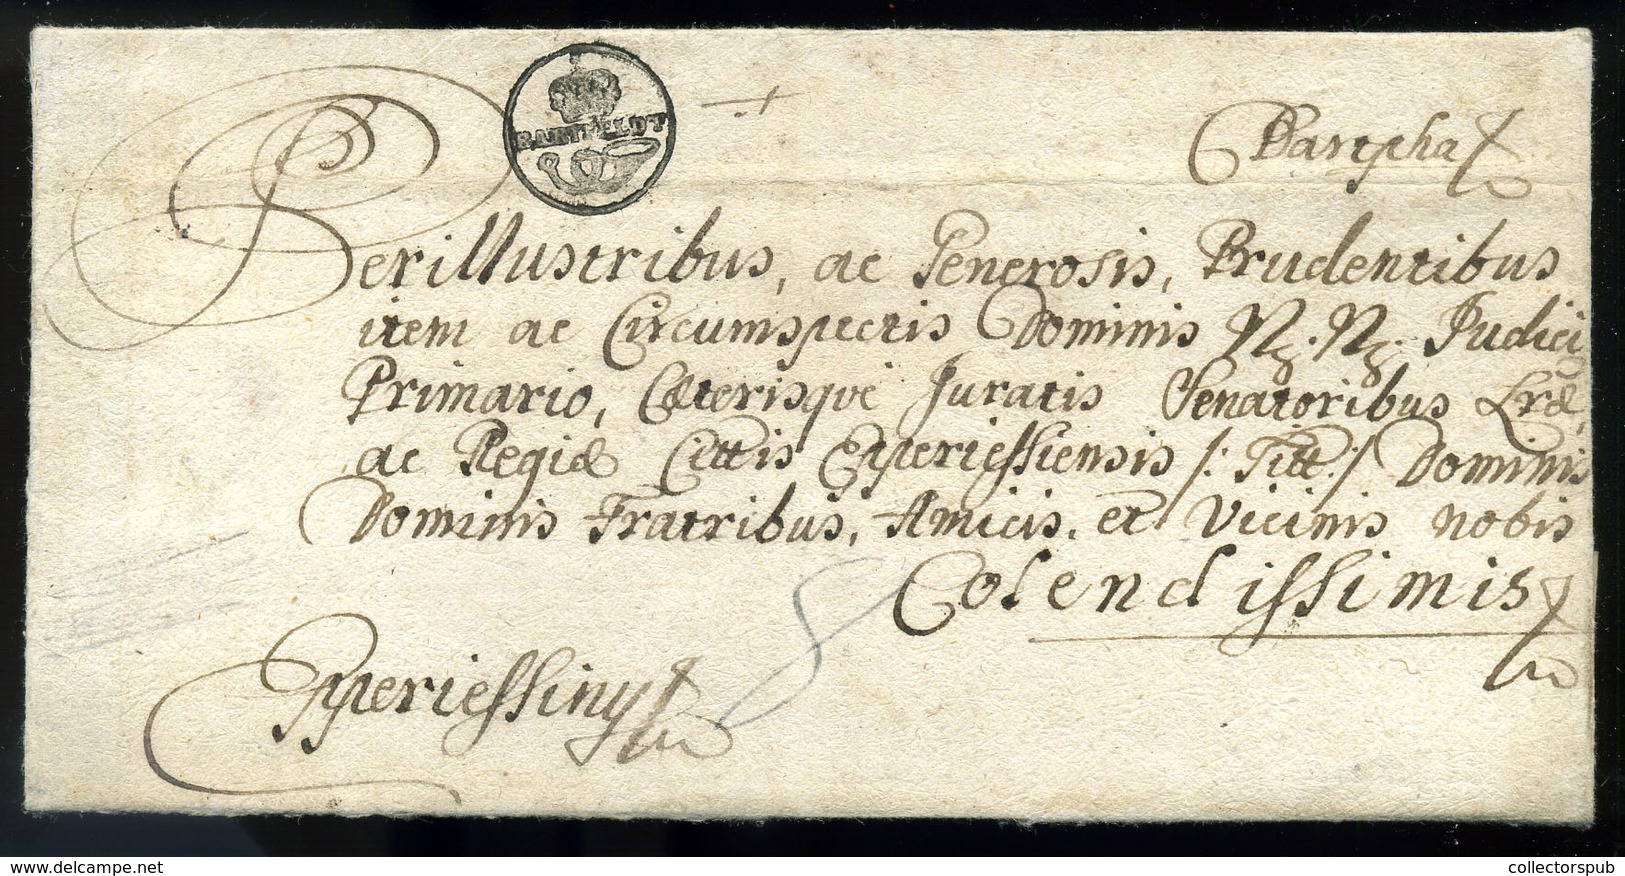 BARTHFLDT
Bartpha
Perillustribus, ac Generosis, Prudentibus
item ac Circumspectis Dominis N. N. Judici
Primario, Cæterisque Juratis Senatoribus Lræ
ac Regiæ Cittis Eperiessiensis /: Titt :/ Dominis
Dominis Fratribus, Amicis, et Vicinis nobis
Colendissimis
8
Eperiessiny
collectorspub